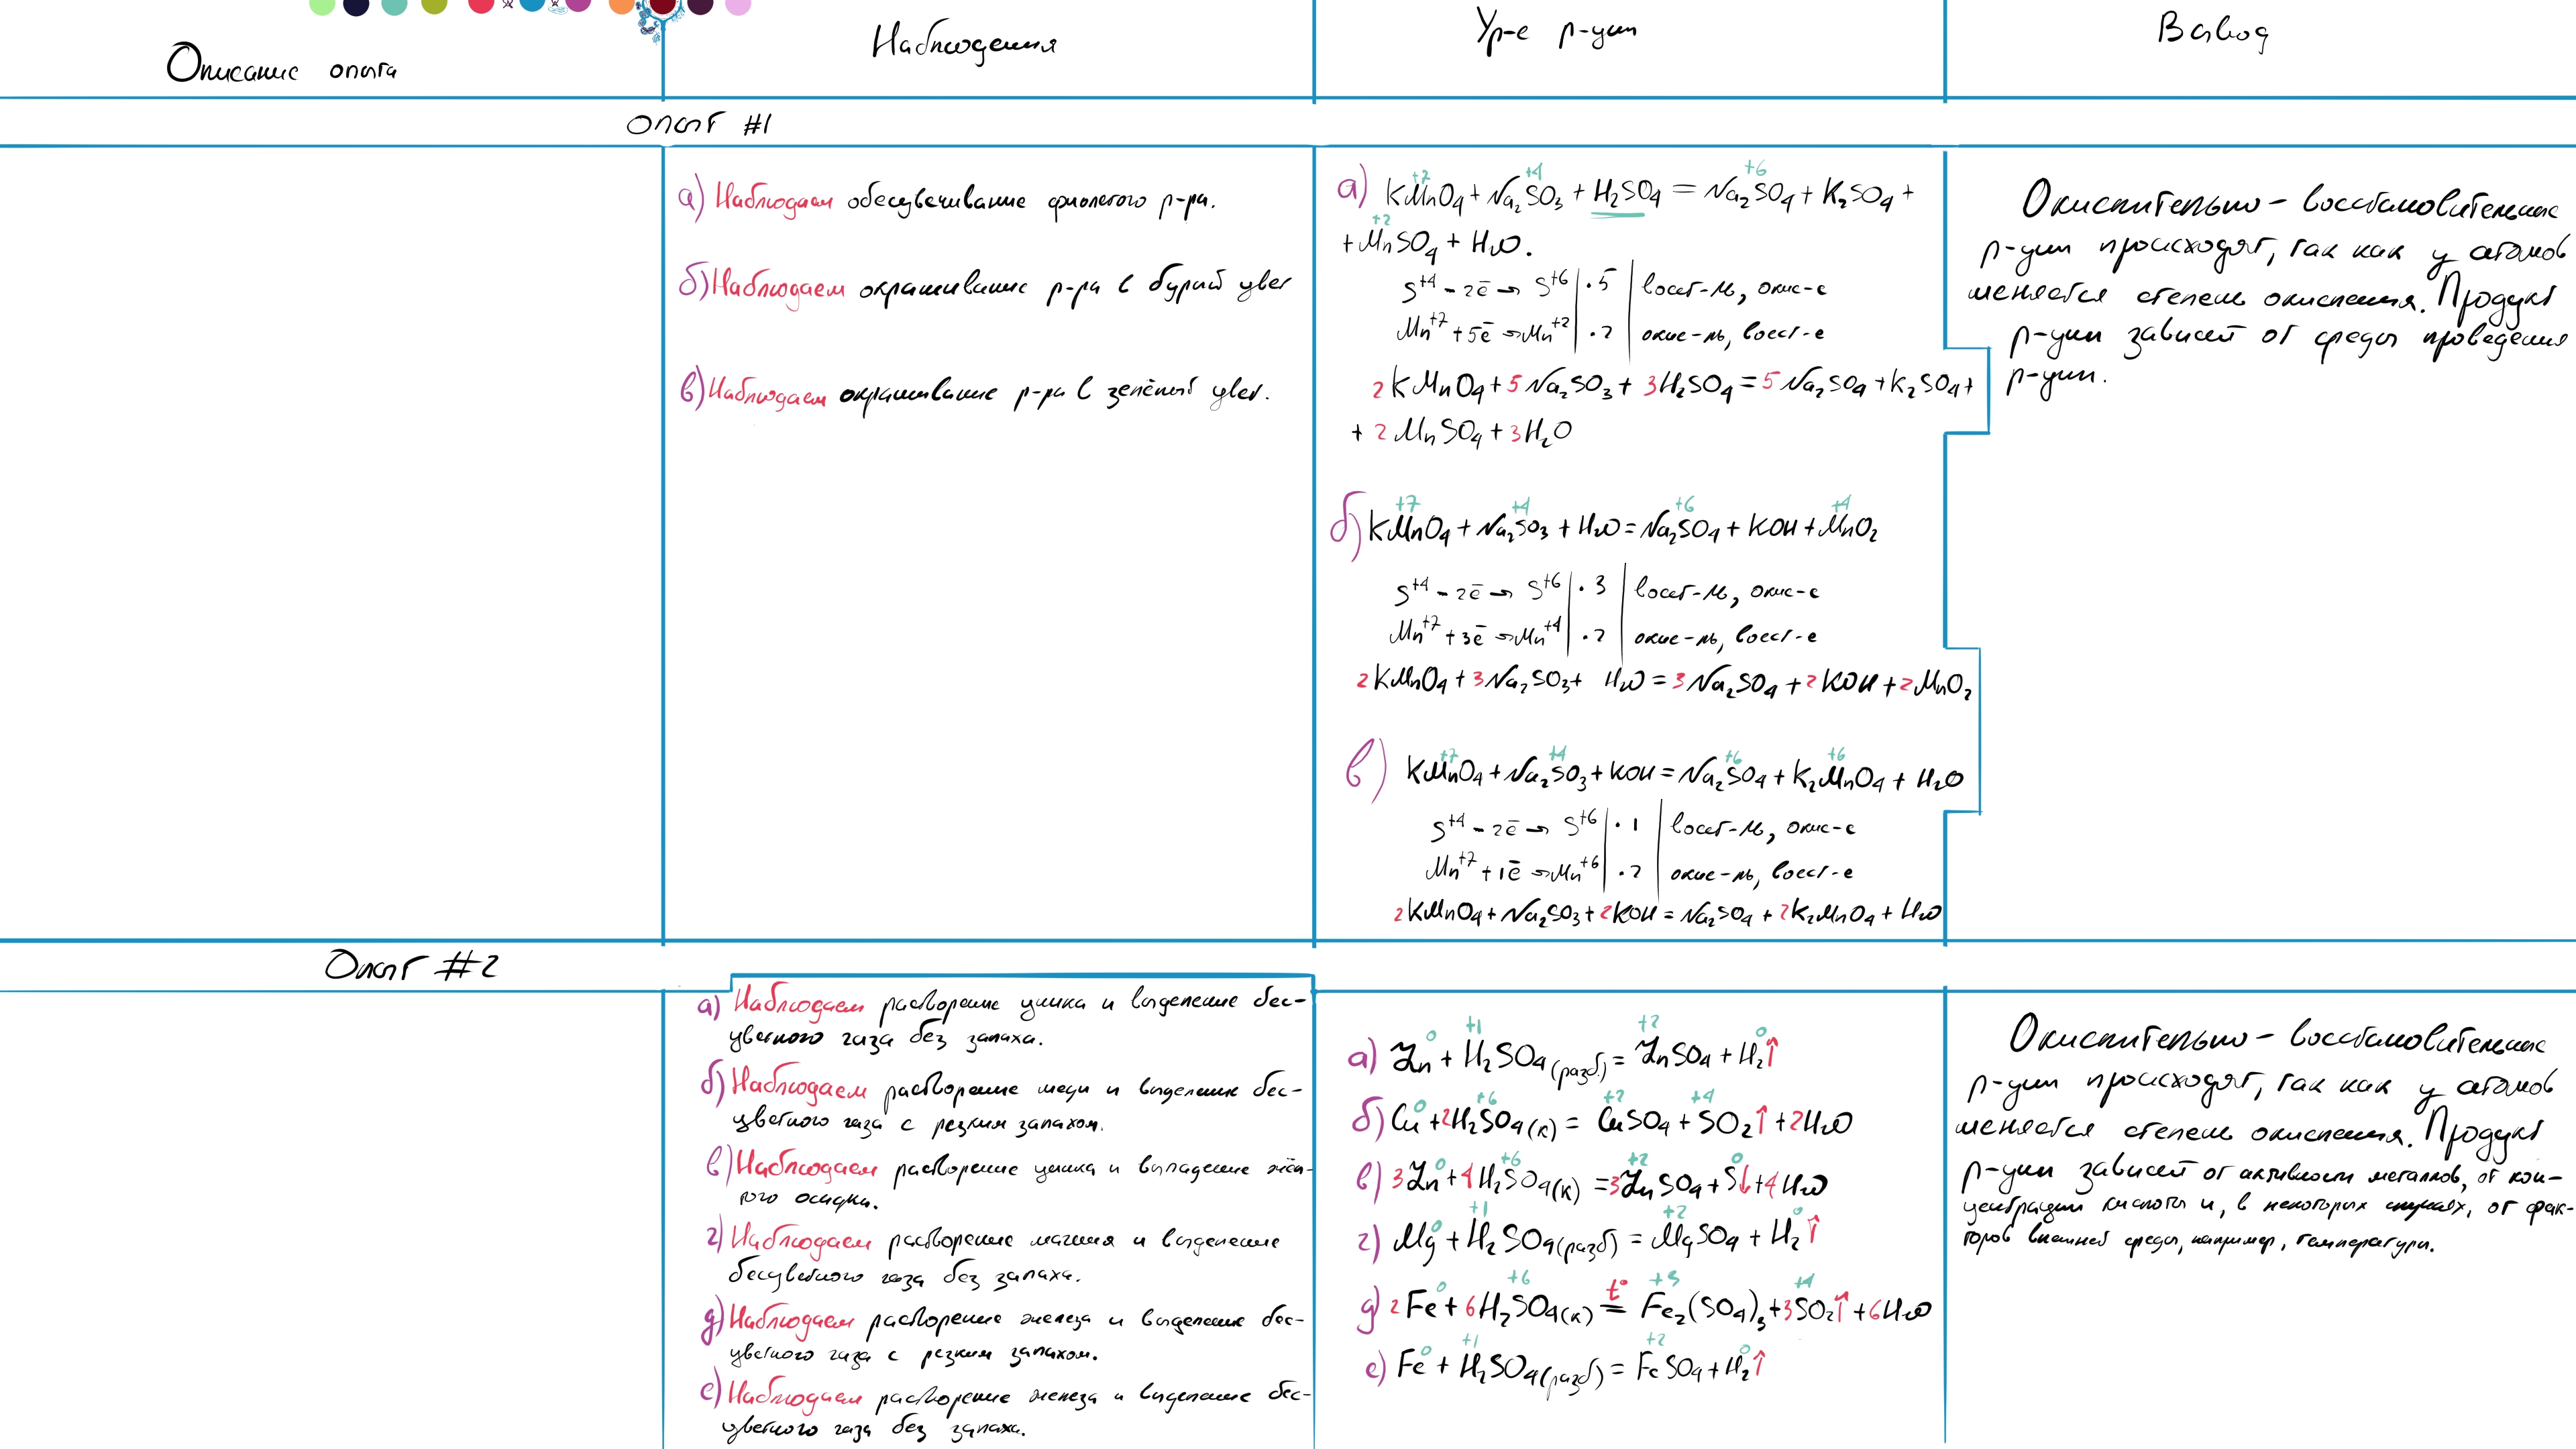 Описание опыта
Наблюдения
Ур-е р-ции
Вывод
Опыт #1
а) Наблюдаем обесцвечивание фиолетого р-ра.
б) Наблюдаем окрашивание р-ра в бурый цвет
в) Наблюдаем окрашивание р-ра в зелёный цвет.
а) KMnO₄ + Na₂SO₃ + H₂SO₄ = Na₂SO₄ + K₂SO₄ +
+7 +4 +6
+ MnSO₄ + H₂O.
+2
S⁺⁴ - 2ē → S⁺⁶ | · 5 | восст-ль, окис-е
Mn⁺⁷ + 5ē → Mn⁺² | · 2 | окис-ль, восст-е
2KMnO₄ + 5Na₂SO₃ + 3H₂SO₄ = 5Na₂SO₄ + K₂SO₄ +
+ 2MnSO₄ + 3H₂O
+7 +4 +6 +4
б) KMnO₄ + Na₂SO₃ + H₂O = Na₂SO₄ + KOH + MnO₂
S⁺⁴ - 2ē → S⁺⁶ | · 3 | восст-ль, окис-е
Mn⁺⁷ + 3ē → Mn⁺⁴ | · 2 | окис-ль, восст-е
2KMnO₄ + 3Na₂SO₃ + H₂O = 3Na₂SO₄ + 2KOH + 2MnO₂
+7 +4 +6 +6
в) KMnO₄ + Na₂SO₃ + KOH = Na₂SO₄ + K₂MnO₄ + H₂O
S⁺⁴ - 2ē → S⁺⁶ | · 1 | восст-ль, окис-е
Mn⁺⁷ + 1ē → Mn⁺⁶ | · 2 | окис-ль, восст-е
2KMnO₄ + Na₂SO₃ + 2KOH = Na₂SO₄ + 2K₂MnO₄ + H₂O
Окислительно-восстановительные
р-ции происходят, так как у атомов
меняется степень окисления. Продукт
р-ции зависит от среды проведения
р-ции.
Опыт #2
а) Наблюдаем растворение цинка и выделение бес-
цветного газа без запаха.
б) Наблюдаем растворение меди и выделение бес-
цветного газа с резким запахом.
в) Наблюдаем растворение цинка и выпадение жёл-
того осадка.
г) Наблюдаем растворение магния и выделение
бесцветного газа без запаха.
д) Наблюдаем растворение железа и выделение бес-
цветного газа с резким запахом.
е) Наблюдаем растворение железа и выделение бес-
цветного газа без запаха.
0 +1 +2 0
а) Zn + H₂SO₄(разб.) = ZnSO₄ + H₂↑
0 +6 +2 +4
б) Cu + 2H₂SO₄(к) = CuSO₄ + SO₂↑ + 2H₂O
0 +6 +2 0
в) 3Zn + 4H₂SO₄(к) = 3ZnSO₄ + S↓ + 4H₂O
0 +1 +2 0
г) Mg + H₂SO₄(разб) = MgSO₄ + H₂↑
0 +6 t° +3 +4
д) 2Fe + 6H₂SO₄(к) = Fe₂(SO₄)₃ + 3SO₂↑ + 6H₂O
0 +1 +2 0
е) Fe + H₂SO₄(разб) = FeSO₄ + H₂↑
Окислительно-восстановительные
р-ции происходят, так как у атомов
меняется степень окисления. Продукт
р-ции зависит от активности металлов, от кон-
центрации кислоты и, в некоторых случаях, от фак-
торов внешней среды, например, температуры.